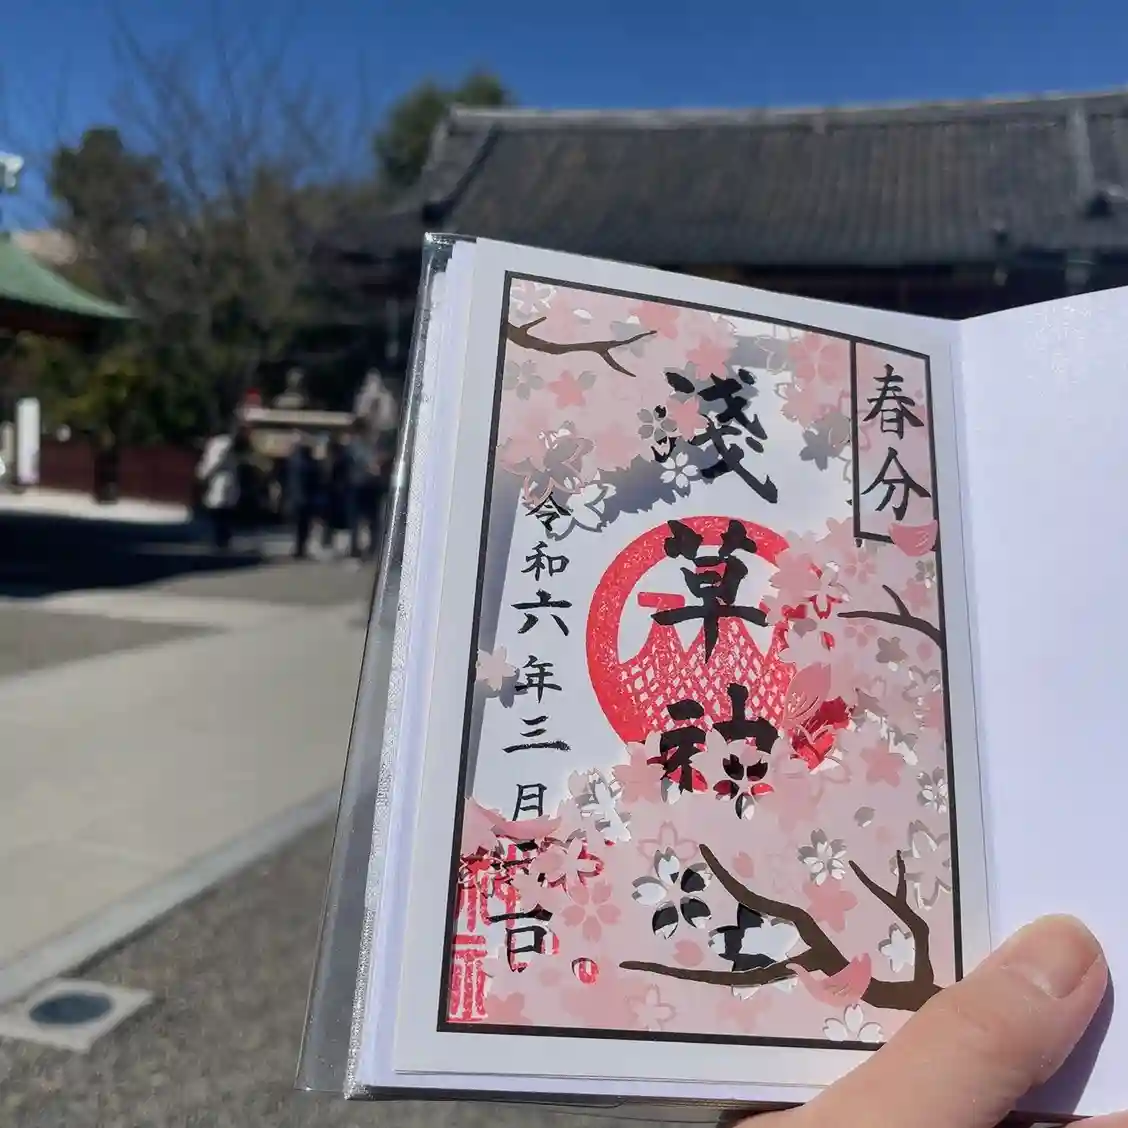 春分
淺草神社
令和六年三月 日